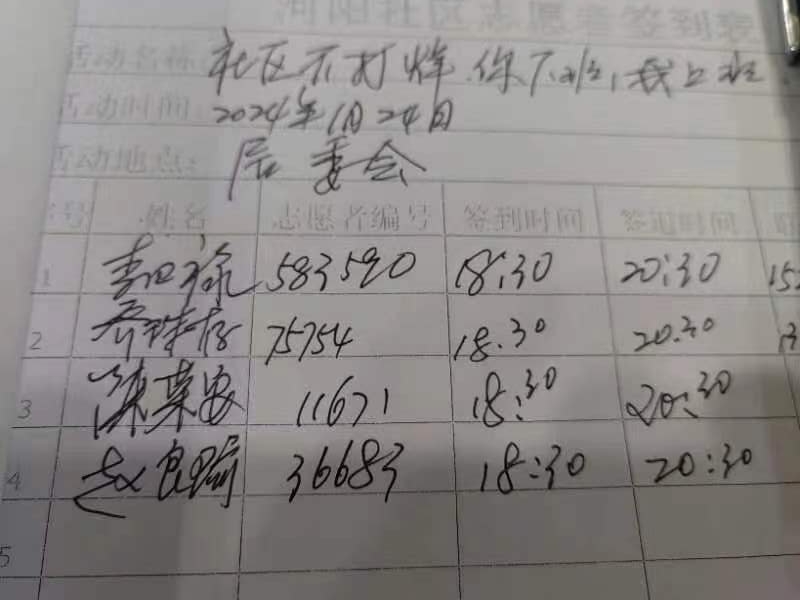 河阳社区志愿者签到表
活动名称: 社区不打烊 你下班,我上班
活动时间: 2024年1月24日
活动地点: 居委会
序号 姓名 志愿者编号 签到时间 签退时间
1 583590 18:30 20:30 152
2 75754 18.30 20.30 13
3 陈荣安 11671 18:30 20:30
4 赵良瑜 36683 18:30 20:30
5